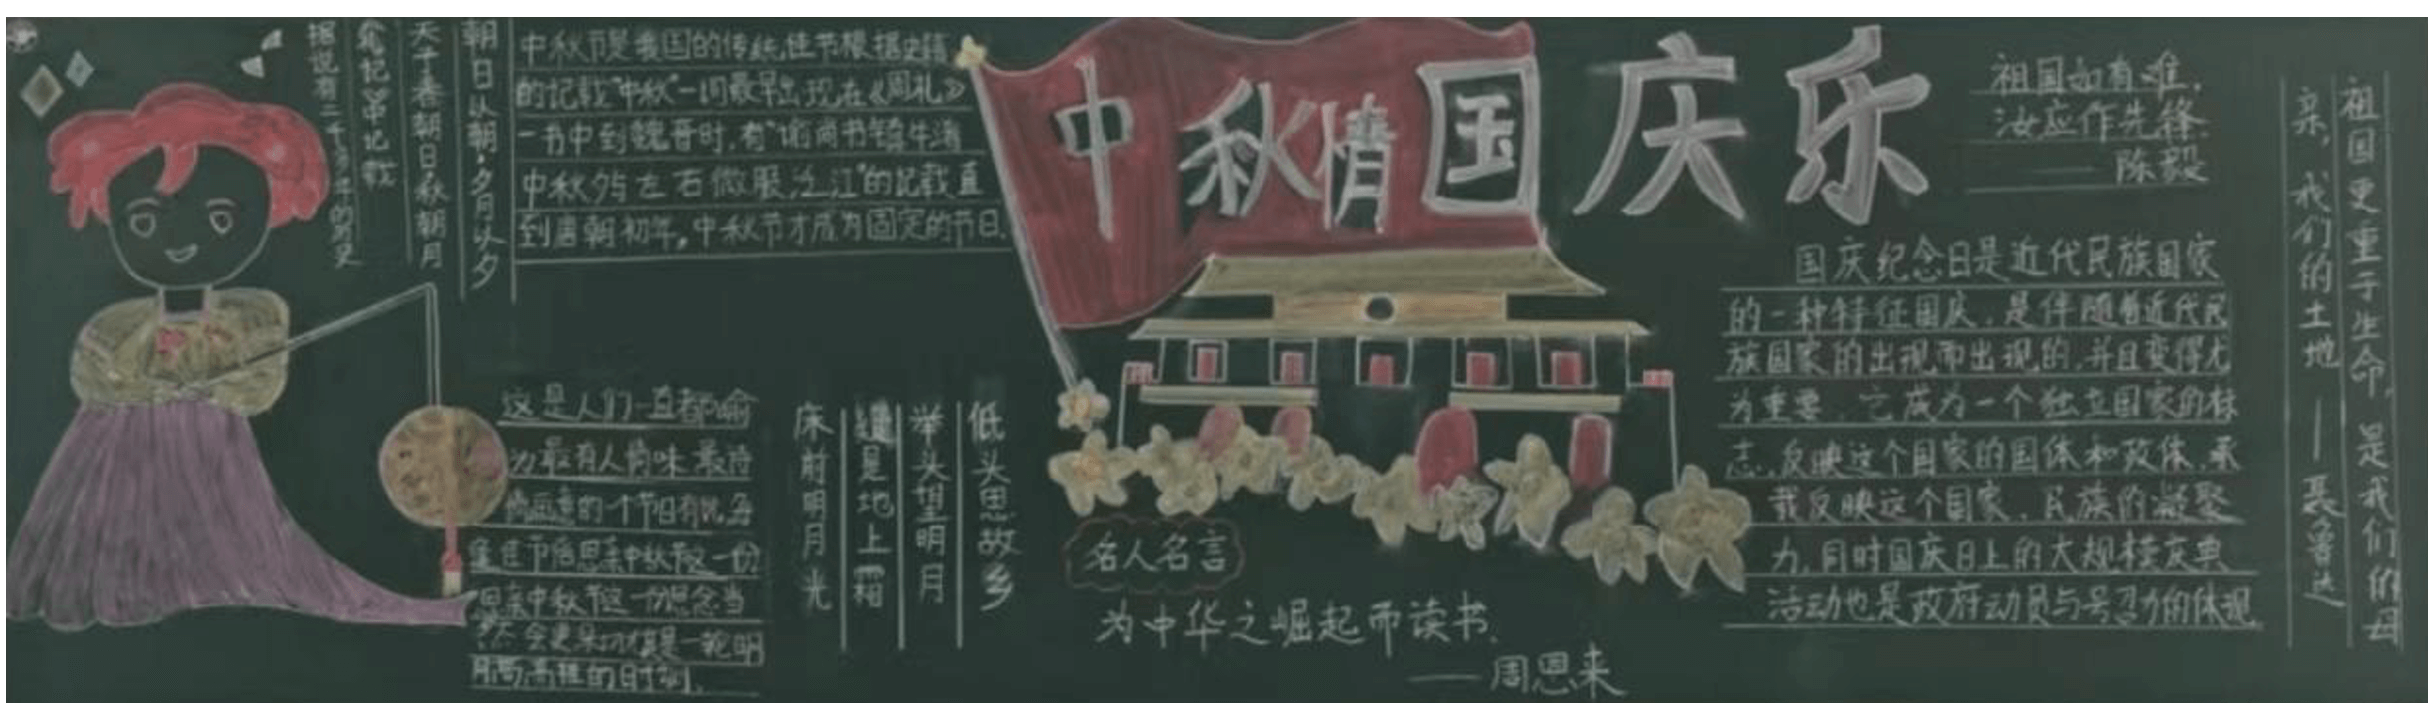 朝日以朝，夕月以夕
天子春朝日，秋朝月
据说有二千多年的历史
中秋节是我国的传统佳节根据史籍
的记载"中秋"一词最早出现在《周礼》
一书中到魏晋时，有"谕尚书镇牛渚
中秋夕与左右微服泛江"的记载直
到唐朝初年，中秋节才成为固定的节日.
这是人们一直都喻
为最有人情味最诗
情画意的一个节日有说每
逢佳节倍思亲中秋节这一份
思亲中秋节这一份思念当
然会更深切尤其是一轮明
月高高挂的时刻.
床前明月光
疑是地上霜
举头望明月
低头思故乡
中秋情国庆乐
名人名言
为中华之崛起而读书.
——周恩来
祖国如有难，
汝应作先锋.
——陈毅
国庆纪念日是近代民族国家
的一种特征国庆，是伴随着近代民
族国家的出现而出现的，并且变得尤
为重要，它成为一个独立国家的标
志，反映这个国家的国体和政体，承
载反映这个国家，民族的凝聚
力，同时国庆日上的大规模庆典
活动也是政府动员与号召力的体现
祖国更重于生命，是我们的母
亲，我们的土地——聂鲁达